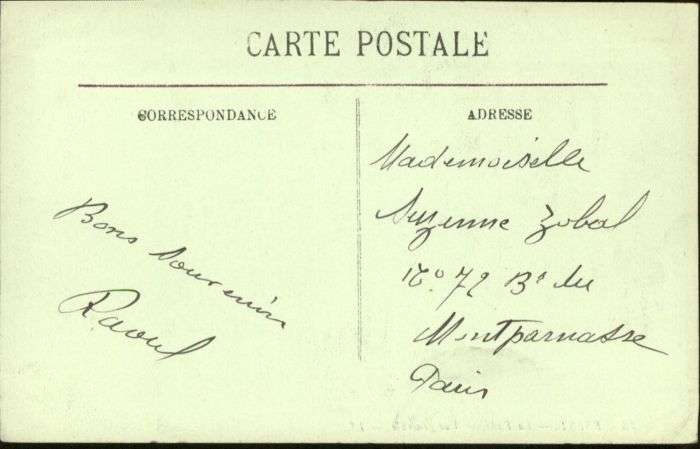 CARTE POSTALE
CORRESPONDANCE
ADRESSE
Bons Souvenirs
Raoul
Mademoiselle
Suzenne Zobal
N° 72 Bd du
Montparnasse
Paris